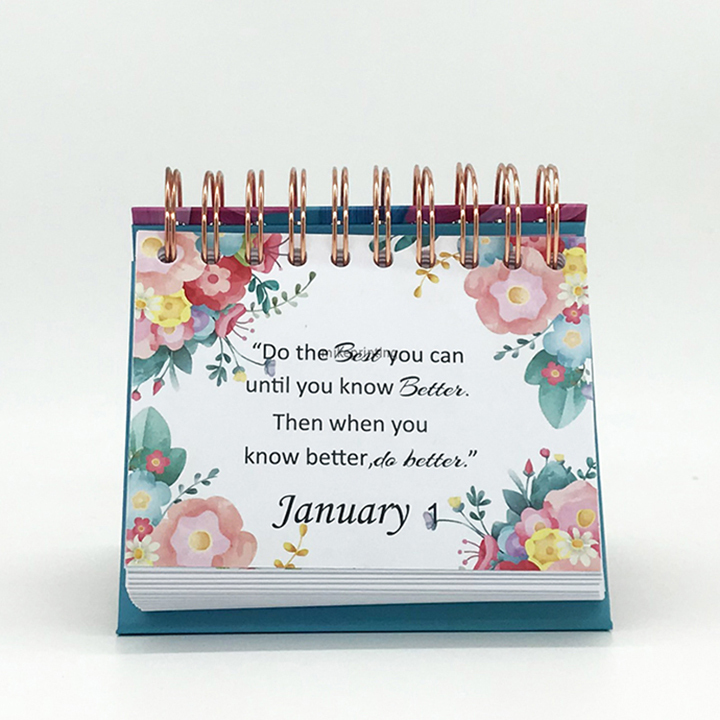 “Do the Best you can
until you know Better.
Then when you
know better,do better.”
January 1